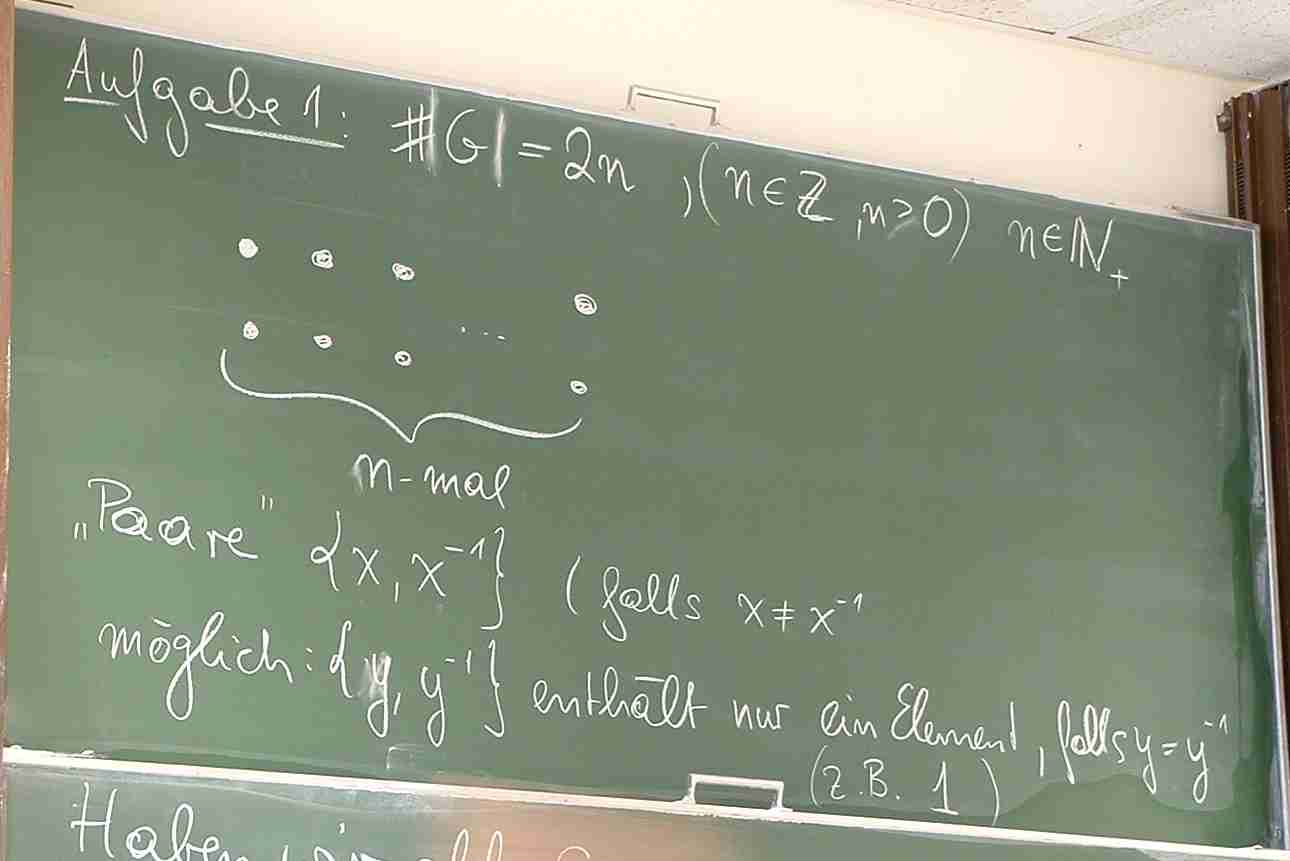 Aufgabe 1: #|G| = 2n , (n∈ℤ, n>0) n∈ℕ₊
...
n-mal
„Paare" {x, x⁻¹} (falls x ≠ x⁻¹
möglich: {y, y⁻¹} enthält nur ein Element, falls y = y⁻¹
(z.B. 1)
Haben wir